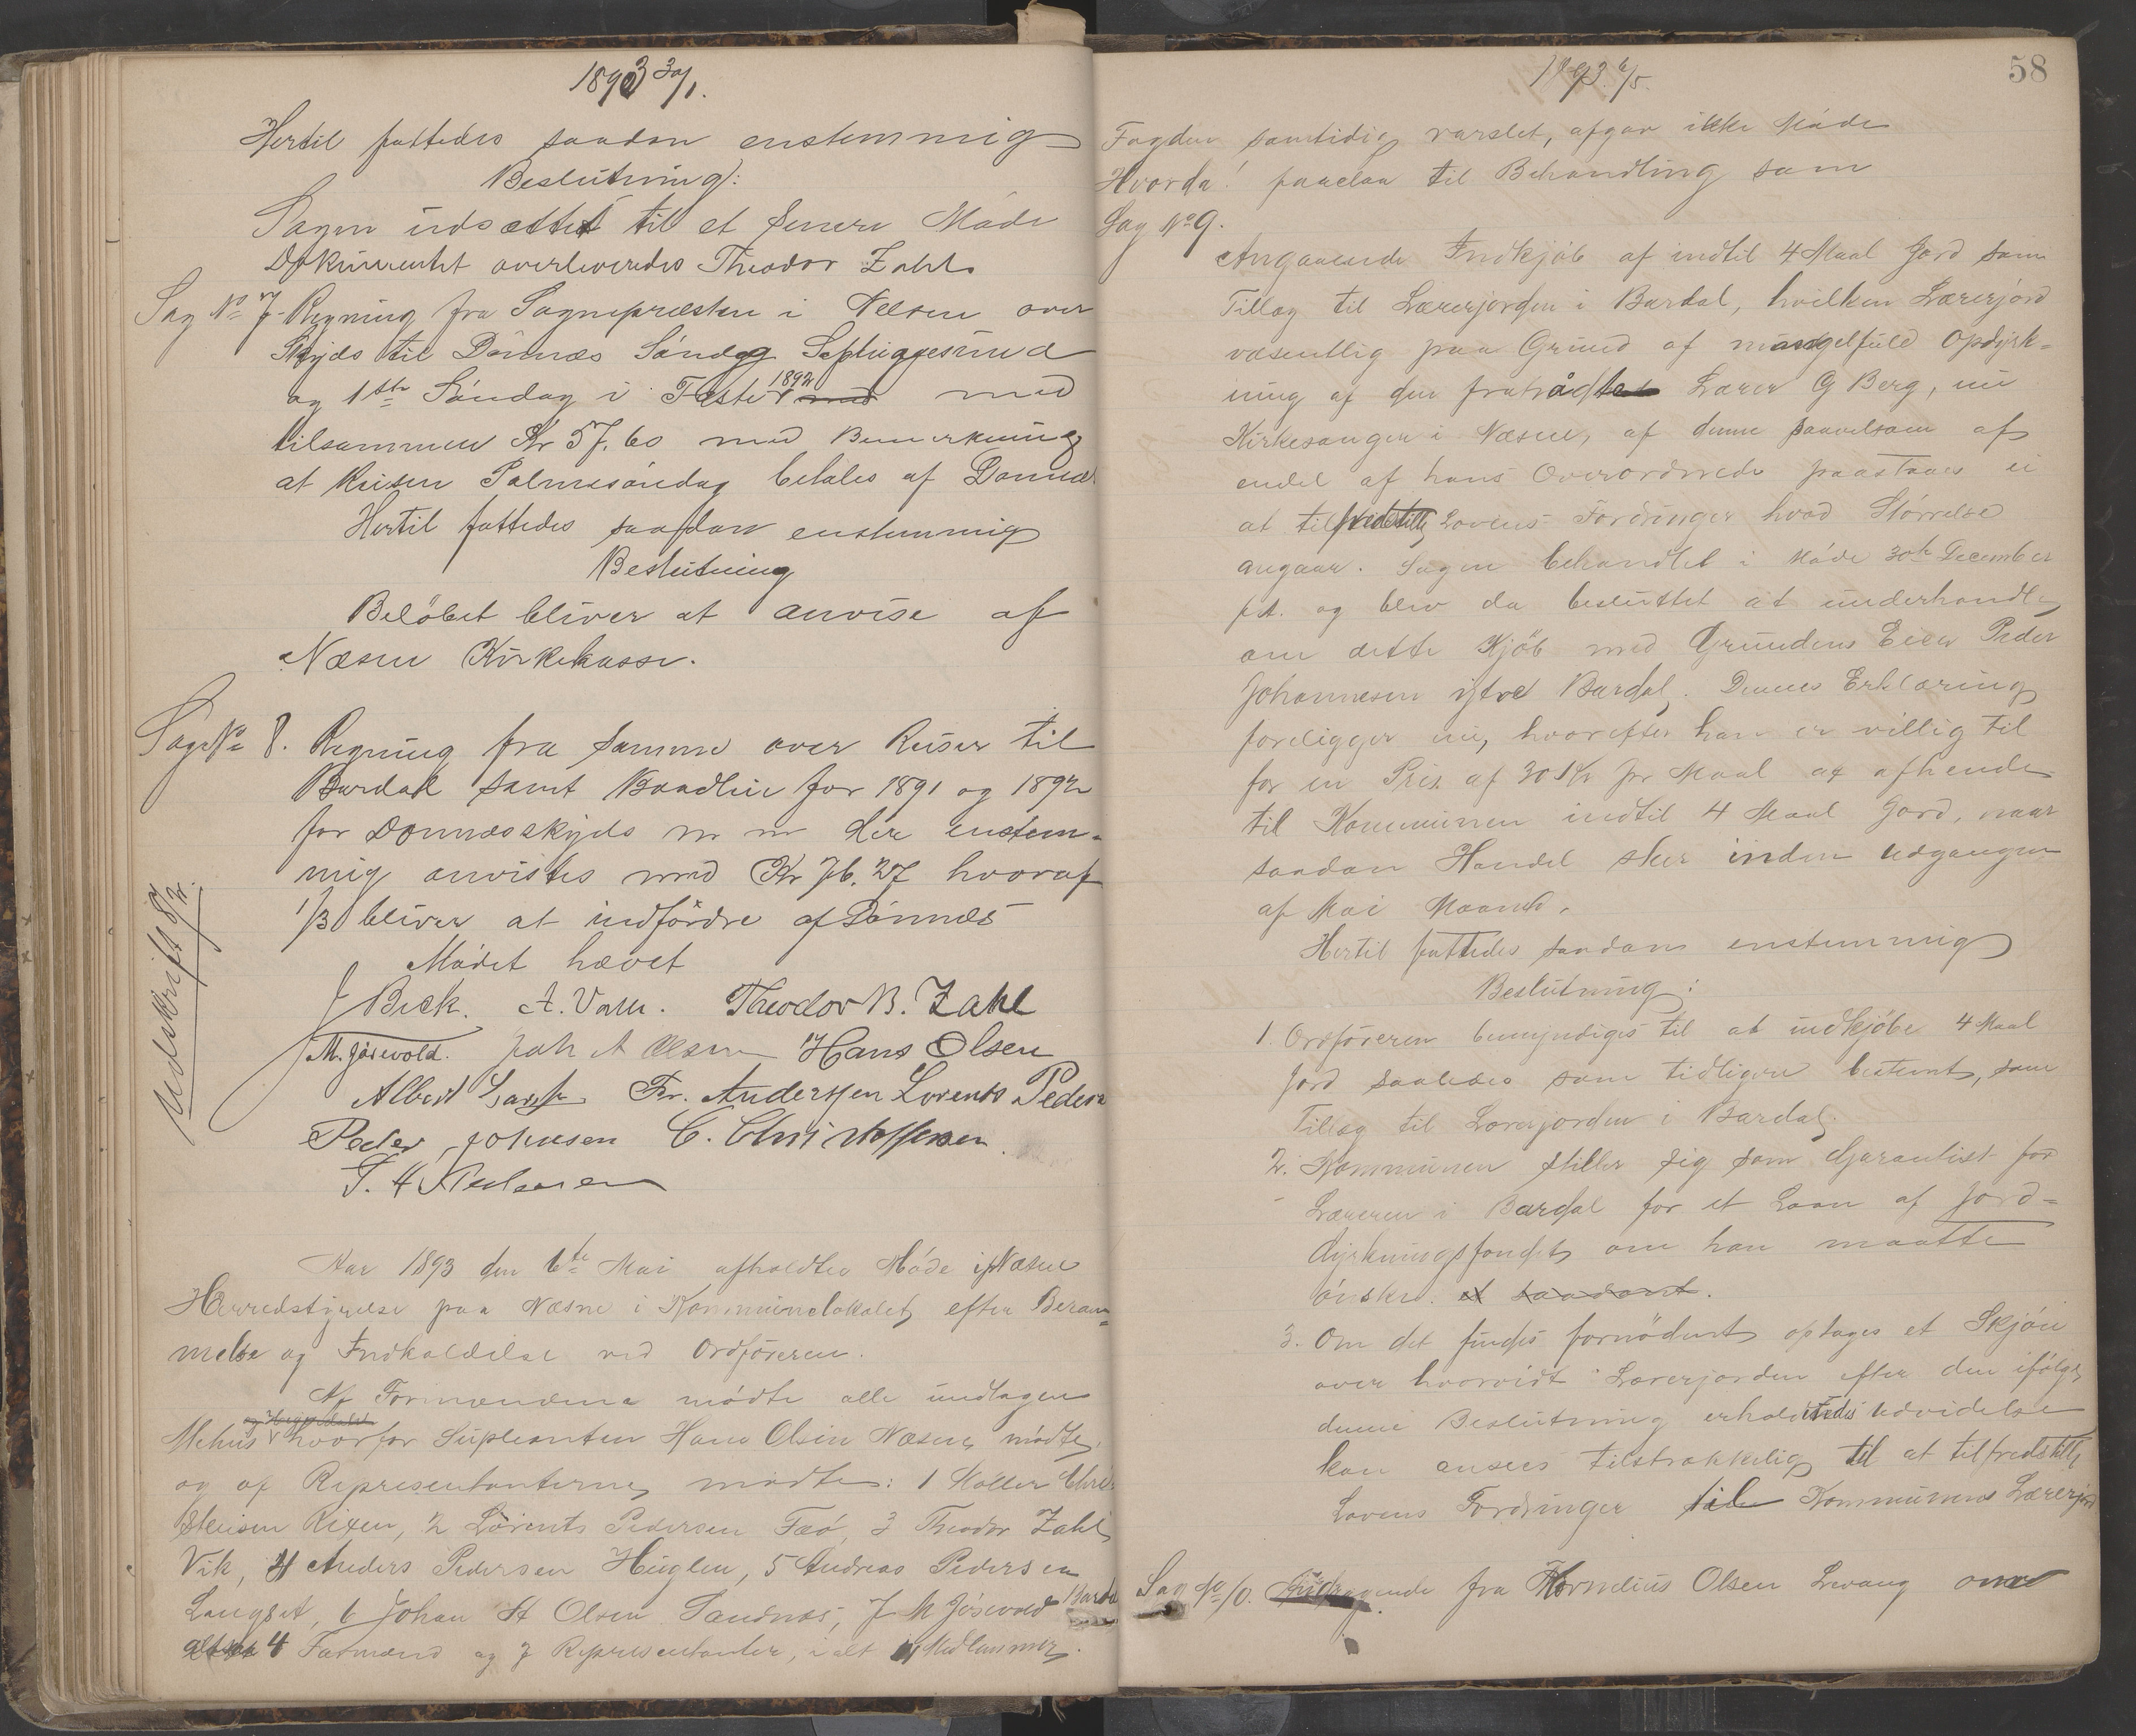 1893 30/1.
Hertil fattedes saadan enstemmig
Beslutning:
Sagen udsættes til et senere Möde
Dokumentet overleveredes Theodor Zahl.
Sag No 7. Regning fra Sognepræsten i Nesne over
Skyds til Dönnes Söndag Septuagesima
og 1ste Söndag i Faste 1892 med
tilsammen Kr 57.60 med Bemerkning
at Reisen Palmesöndag betales af Dönnes
Hertil fattedes saadan enstemmig
Beslutning
Belöbet bliver at anvise af
Næsne Kirkekasse.
Sag No 8. Regning fra samme over Reiser til
Bardal samt Baadleie for 1891 og 1892
for Dönnesskyds m m der enstem-
mig anvistes med Kr 76.27 hvoraf
1/3 bliver at indfordre af Dönnes
Mödet hævet
Udskrift 8/2.
J Bech. A. Vaag. Theodor B. Zahl
M. Jösevold. Joh A Olsen Hans Olsen
Albert Fr. Anderssen Lorents Peders
Peder Johnsen C. Christoffersen
Aar 1893 den 6te Mai afholdtes Möde i Næsne
Herredstyrelse paa Næsne i Kommunelokalet efter Beram-
melse og Indkaldelse ved Ordföreren.
Af Formændene mödte alle undtagen
Mehus hvorfor Supleanten Hans Olsen Næsne mödte,
og af Representanterne mödte: 1 Möller Chri-
stensen Rixen, 2 Lorents Pedersen Fæö, 3 Theodor Zahl
Vik, 4 Anders Pedersen Huglen, 5 Andreas Pedersen
Langset, 6 Johan A Olsen Sandnes, 7 M Jösevold Bardal
altsaa 4 Formænd og 7 Representanter, ialt 11 Medlemmer.
58
1893 6/5.
Fogden samtidig varslet, afgav ikke Möde
Hvorda! paaclaa til Behandling som
Sag No 9.
Angaaende Indkjöb af indtil 4 Maal Jord som
Tillæg til Lærerjorden i Bardal, hvilken Lærerjord
væsentlig paa Grund af mangelfuld Opdyrk-
ning af den fratrådte Lærer G Berg, nu
Kirkesanger i Næsne, af denne saavelsom af
endel af hans Overordnede paastaaes ei
at tilfredstille Lovens Fordringer hvad Störrelse
angaar. Sagen behandlet i Möde 30te December
f.A. og blev da besluttet at underhandle
om dette Kjöb med Grundens Eier Peder
Johannesen ytre Bardal. Dennes Erklæring
foreligger nu, hvorefter han er villig til
for en Pris af 30 Kr pr Maal at afhende
til Kommunen indtil 4 Maal Jord, naar
saadan Handel sker inden Udgangen
af Mai Maaned.
Hertil fattedes saadan enstemmig
Beslutning:
1. Ordföreren bemyndiges til at indkjöbe 4 Maal
Jord saaledes som tidligere bestemt, som
Tillæg til Lærerjorden i Bardal.
2. Kommunen stiller sig som Garantist for
Læreren i Bardal for et Laan af Jord-
dyrkningsfondet om han maatte
önske. et saadant.
3. Om det findes fornödent optages et Skjön
over hvorvidt Lærerjorden efter den ifölge
denne Beslutning erholdtedes Udvidelse
kan ansees tilstrækkelig til at tilfredstille
Lovens Fordringer til Kommunens Lærerjord
Sag No 10. Andragende fra Kornelius Olsen Levang om